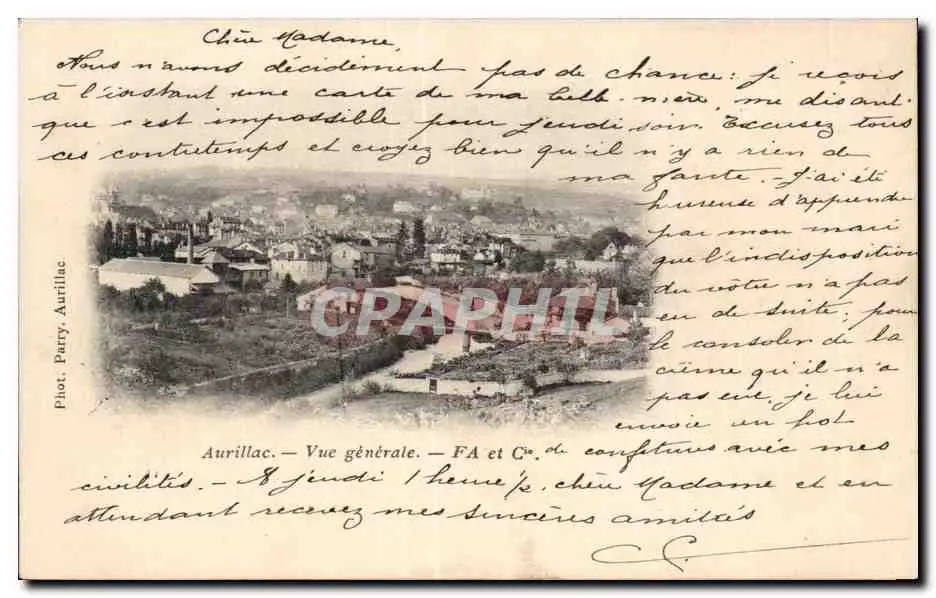 Chère Madame,
Nous n'avons décidément pas de chance : je reçois
à l'instant une carte de ma belle-mère, me disant
que c'est impossible pour jeudi soir. Excusez tous
ces contretemps et croyez bien qu'il n'y a rien de
ma faute. - J'ai été
heureuse d'apprendre
par mon mari
que l'indisposition
du vôtre n'a pas
eu de suite ; pour
le consoler de la
crème qu'il n'a
pas eue, je lui
envoie un pot
de confitures avec mes
civilités. - A jeudi 1 heure ½, chère Madame et en
attendant recevez mes sincères amitiés
Aurillac. — Vue générale. — FA et Cie.
Phot. Parry, Aurillac
CPARPHIL